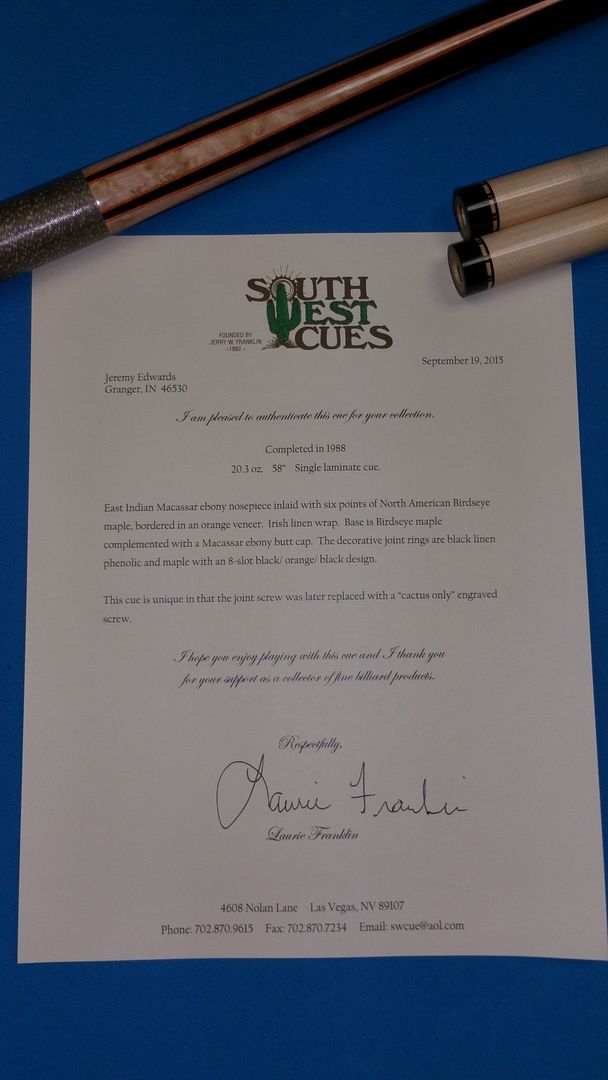 SOUTH
WEST
CUES
FOUNDED BY
JERRY W. FRANKLIN
–1982–
September 19, 2015
Jeremy Edwards
Granger, IN 46530
I am pleased to authenticate this cue for your collection.
Completed in 1988
20.3 oz. 58" Single laminate cue.
East Indian Macassar ebony nosepiece inlaid with six points of North American Birdseye
maple, bordered in an orange veneer. Irish linen wrap. Base is Birdseye maple
complemented with a Macassar ebony butt cap. The decorative joint rings are black linen
phenolic and maple with an 8-slot black/ orange/ black design.
This cue is unique in that the joint screw was later replaced with a "cactus only" engraved
screw.
I hope you enjoy playing with this cue and I thank you
for your support as a collector of fine billiard products.
Respectfully,
Laurie Franklin
Laurie Franklin
4608 Nolan Lane Las Vegas, NV 89107
Phone: 702.870.9615 Fax: 702.870.7234 Email: swcue@aol.com